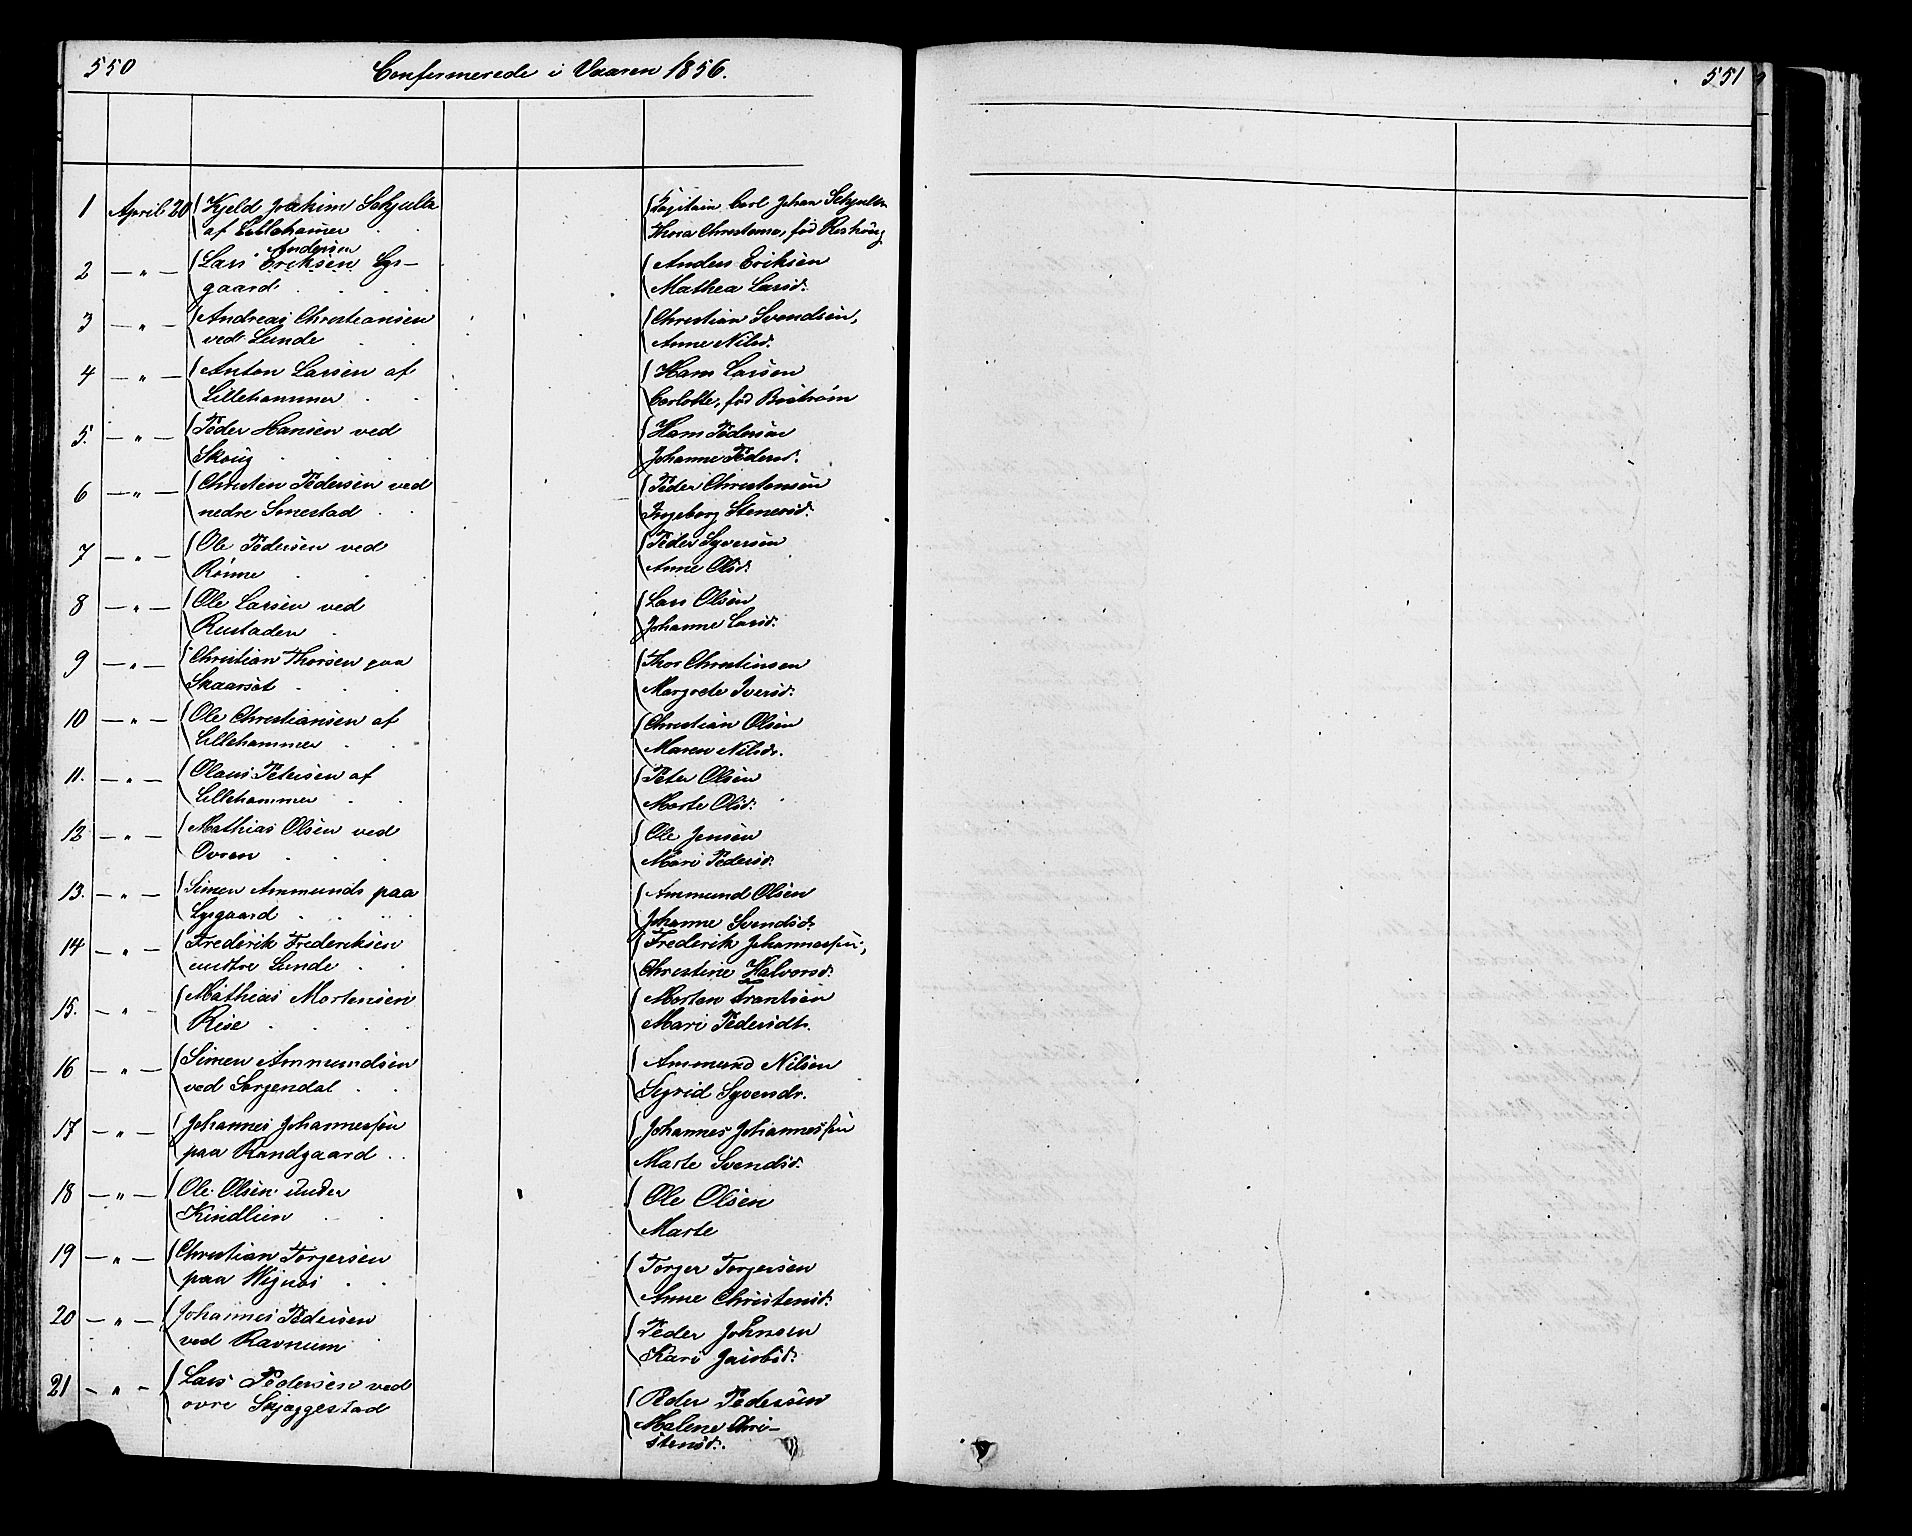 550 Confermerede i Vaaren 1856.
551
1 April 20 Kjeld Joakim Schjulta Capitain Carl Johan Schjulta
af Lillehamer Christence, fød
Andersen
2 — " — Lars Eriksen Lys- Anders Eriksen
gaard. Mathea Larsd.
3 — " — Andreas Christiansen Christian Svendsen,
ved Lunde Anne Nilsd.
4 — " — Anton Larsen af Hans Larsen
Lillehammer Carlotte, fød Boström
5. — " — Peder Hansen ved Hans Pedersen
Skoug Johanne Pedersd.
6 — " — Christen Pedersen ved Peder Christensen
nedre Sonestad Ingeborg Stenersd.
7 — " — Ole Pedersen ved Peder Syversen
Rönne Anne Olsd.
8 — " — Ole Larsen ved Lars Olsen
Rustaden Johanne Larsd.
9 — " — Christian Thorsen paa Thor Christensen
Skaarset Margrete Iversd.
10 — " — Ole Christiansen af Christian Olsen
Lillehammer Maren Nilsdr.
11. — " — Olaus Petersen af Peter Olsen
Lillehammer Marte Olsd.
12 — " — Mathias Olsen ved Ole Jensen
Ovren Mari Pedersd.
13. — " — Simen Ammunds paa Ammund Olsen
Lysgaard Johanne Svendsd.
14 — " — Frederik Frederiksen Frederik Johannessen,
nustre Lunde Christine Halvorsd.
15. — " — Mathias Mortensen Morten Frantsen
Rise Mari Pedersdt.
16 — " — Simen Ammundsen Ammund Nilsen
ved Sorgendal Sigrid Syvendr.
17 — " — Johannes Johannessen Johannes Johannessen
paa Randgaard Marte Svendsd.
18 — " — Ole Olsen under Ole Olsen
Kindlien Marte
19 — " — Christian Torgersen Torger Torgersen
paa Wignes Anne Christensd.
20 — " — Johannes Pedersen Peder Johnsen
ved Ravnum Kari Jacobsd.
21 — " — Lars Pedersen ved Peder Pedersen
ovre Skjæggestad Malene Chri-
stensd.